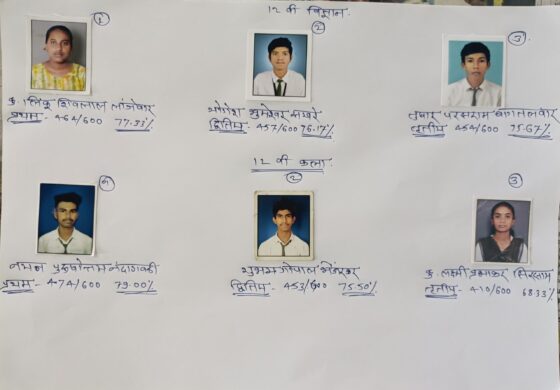 12 वी विज्ञान.
1
2
3
कु. शिवलाल लांजेवार
प्रथम - 464/600 77.33%
योगेश भुमेश्वर
द्वितिय - 457/600 76.17%
तुषार परसराम
तृतीय - 454/600 75.67%
12 वी कला.
1
2
3
नमन पुरुषोत्तम
प्रथम - 474/600 79.00%
शुभम गोपाल
द्वितिय - 453/600 75.50%
कु. लक्ष्मी प्रभाकर सिरसाम
तृतीय - 410/600 68.33%